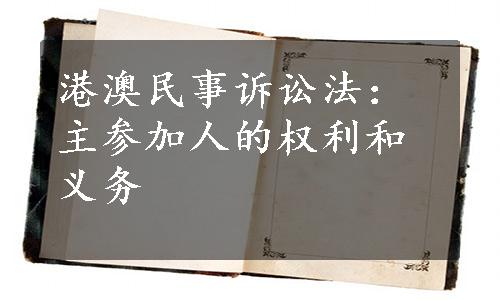 港澳民事诉讼法：
主参加人的权利和
义务